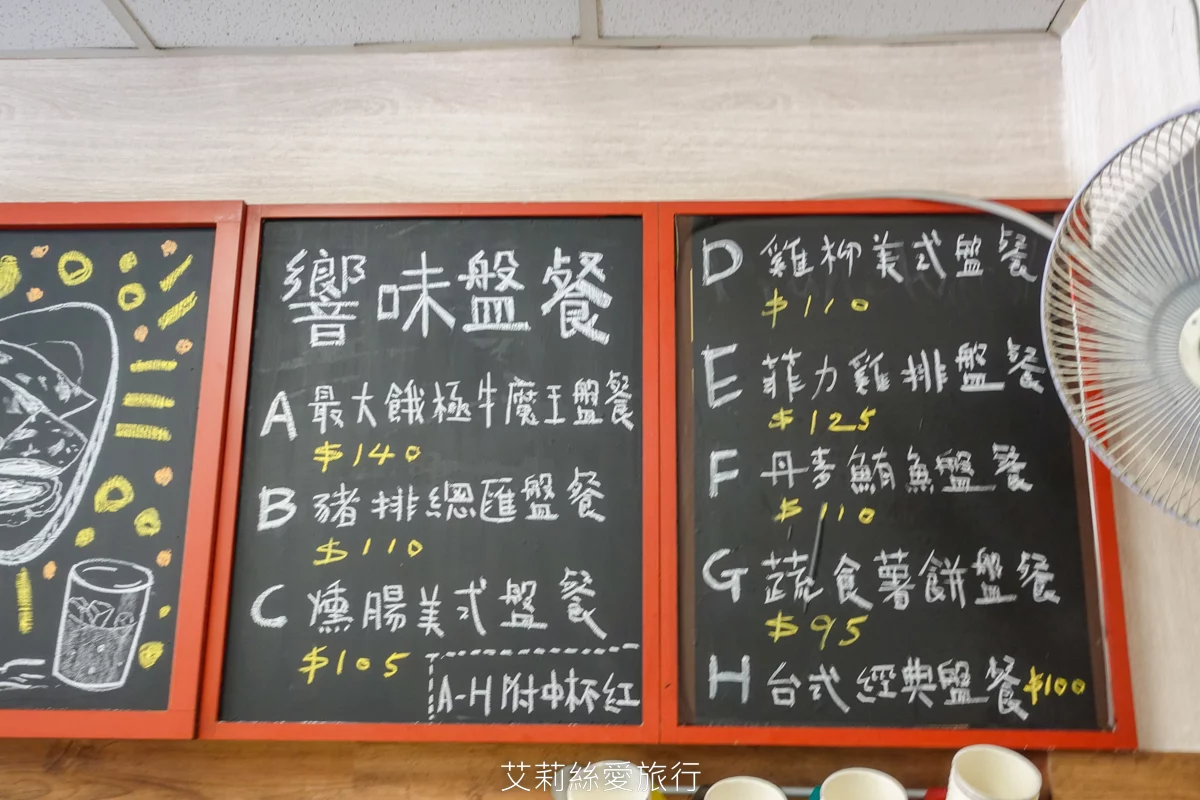 響味盤餐
A 最大餓極牛魔王盤餐
$140
B 豬排總匯盤餐
$110
C 燻腸美式盤餐
$105
A-H 附中杯紅
D 雞柳美式盤餐
$110
E 菲力雞排盤餐
$125
F 丹麥鮪魚盤餐
$110
G 蔬食薯餅盤餐
$95
H 台式經典盤餐 $100
艾莉絲愛旅行